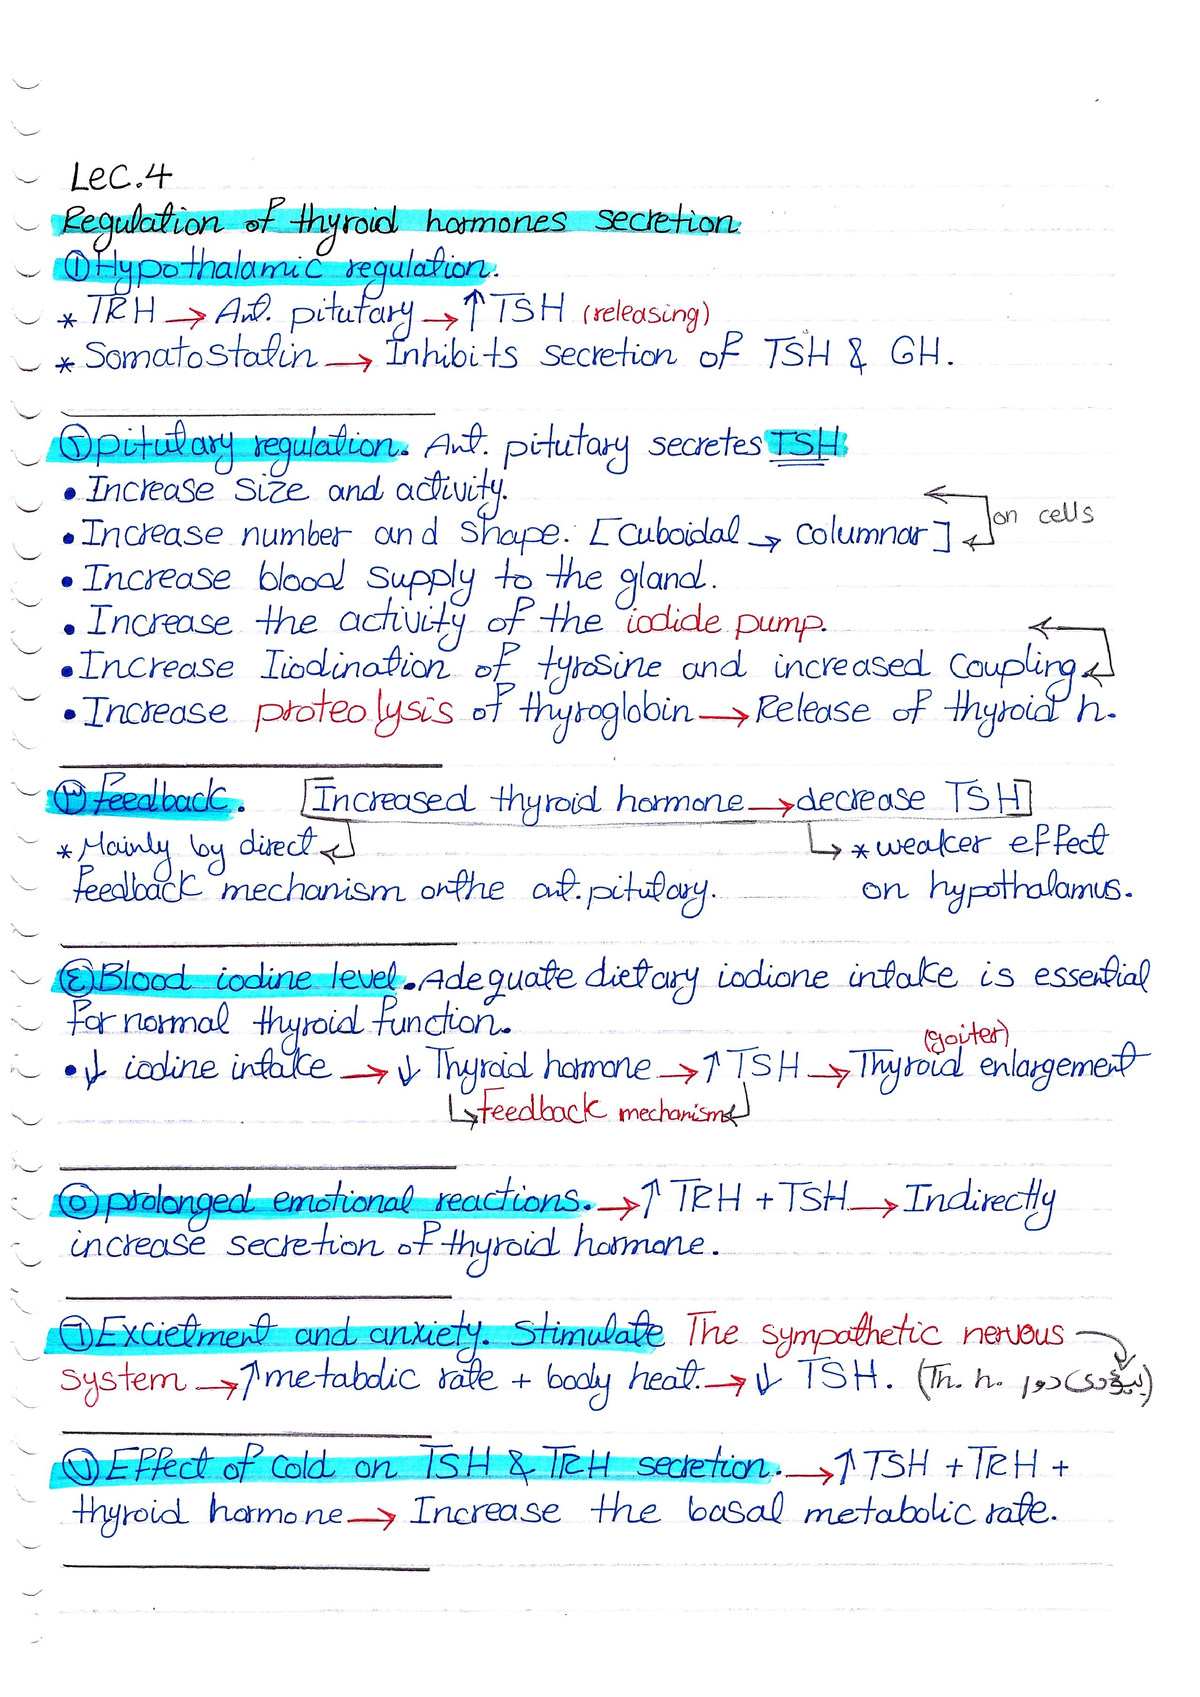 Lec.4
Regulation of thyroid hormones secretion
①Hypothalamic regulation.
* TRH → Ant. pitutary → ↑ TSH (releasing)
* Somatostatin → Inhibits secretion of TSH & GH.
٢ pitutary regulation. Ant. pitutary secretes TSH
• Increase size and activity.
• Increase number and shape. [Cuboidal → columnar] on cells
• Increase blood supply to the gland.
• Increase the activity of the iodide pump.
• Increase Iiodination of tyrosine and increased coupling
• Increase proteolysis of thyroglobin → Release of thyroid h.
٣ Feedback. [Increased thyroid hormone → decrease TSH]
* Mainly by direct * weaker effect
feedback mechanism on the ant. pitutary. on hypothalamus.
٤ Blood iodine level. Adequate dietary iodione intake is essential
for normal thyroid function.
(goiter)
• ↓ iodine intake → ↓ Thyroid hormone → ↑ TSH → Thyroid enlargement
Feedback mechanism
٥ prolonged emotional reactions. → ↑ TRH + TSH → Indirectly
increase secretion of thyroid hormone.
٦ Excietment and anxiety. Stimulate The sympathetic nervous
system → ↑ metabolic rate + body heat. → ↓ TSH. (Th. h. دور)
٧ Effect of cold on TSH & TRH secretion. → ↑ TSH + TRH +
thyroid hormone → Increase the basal metabolic rate.